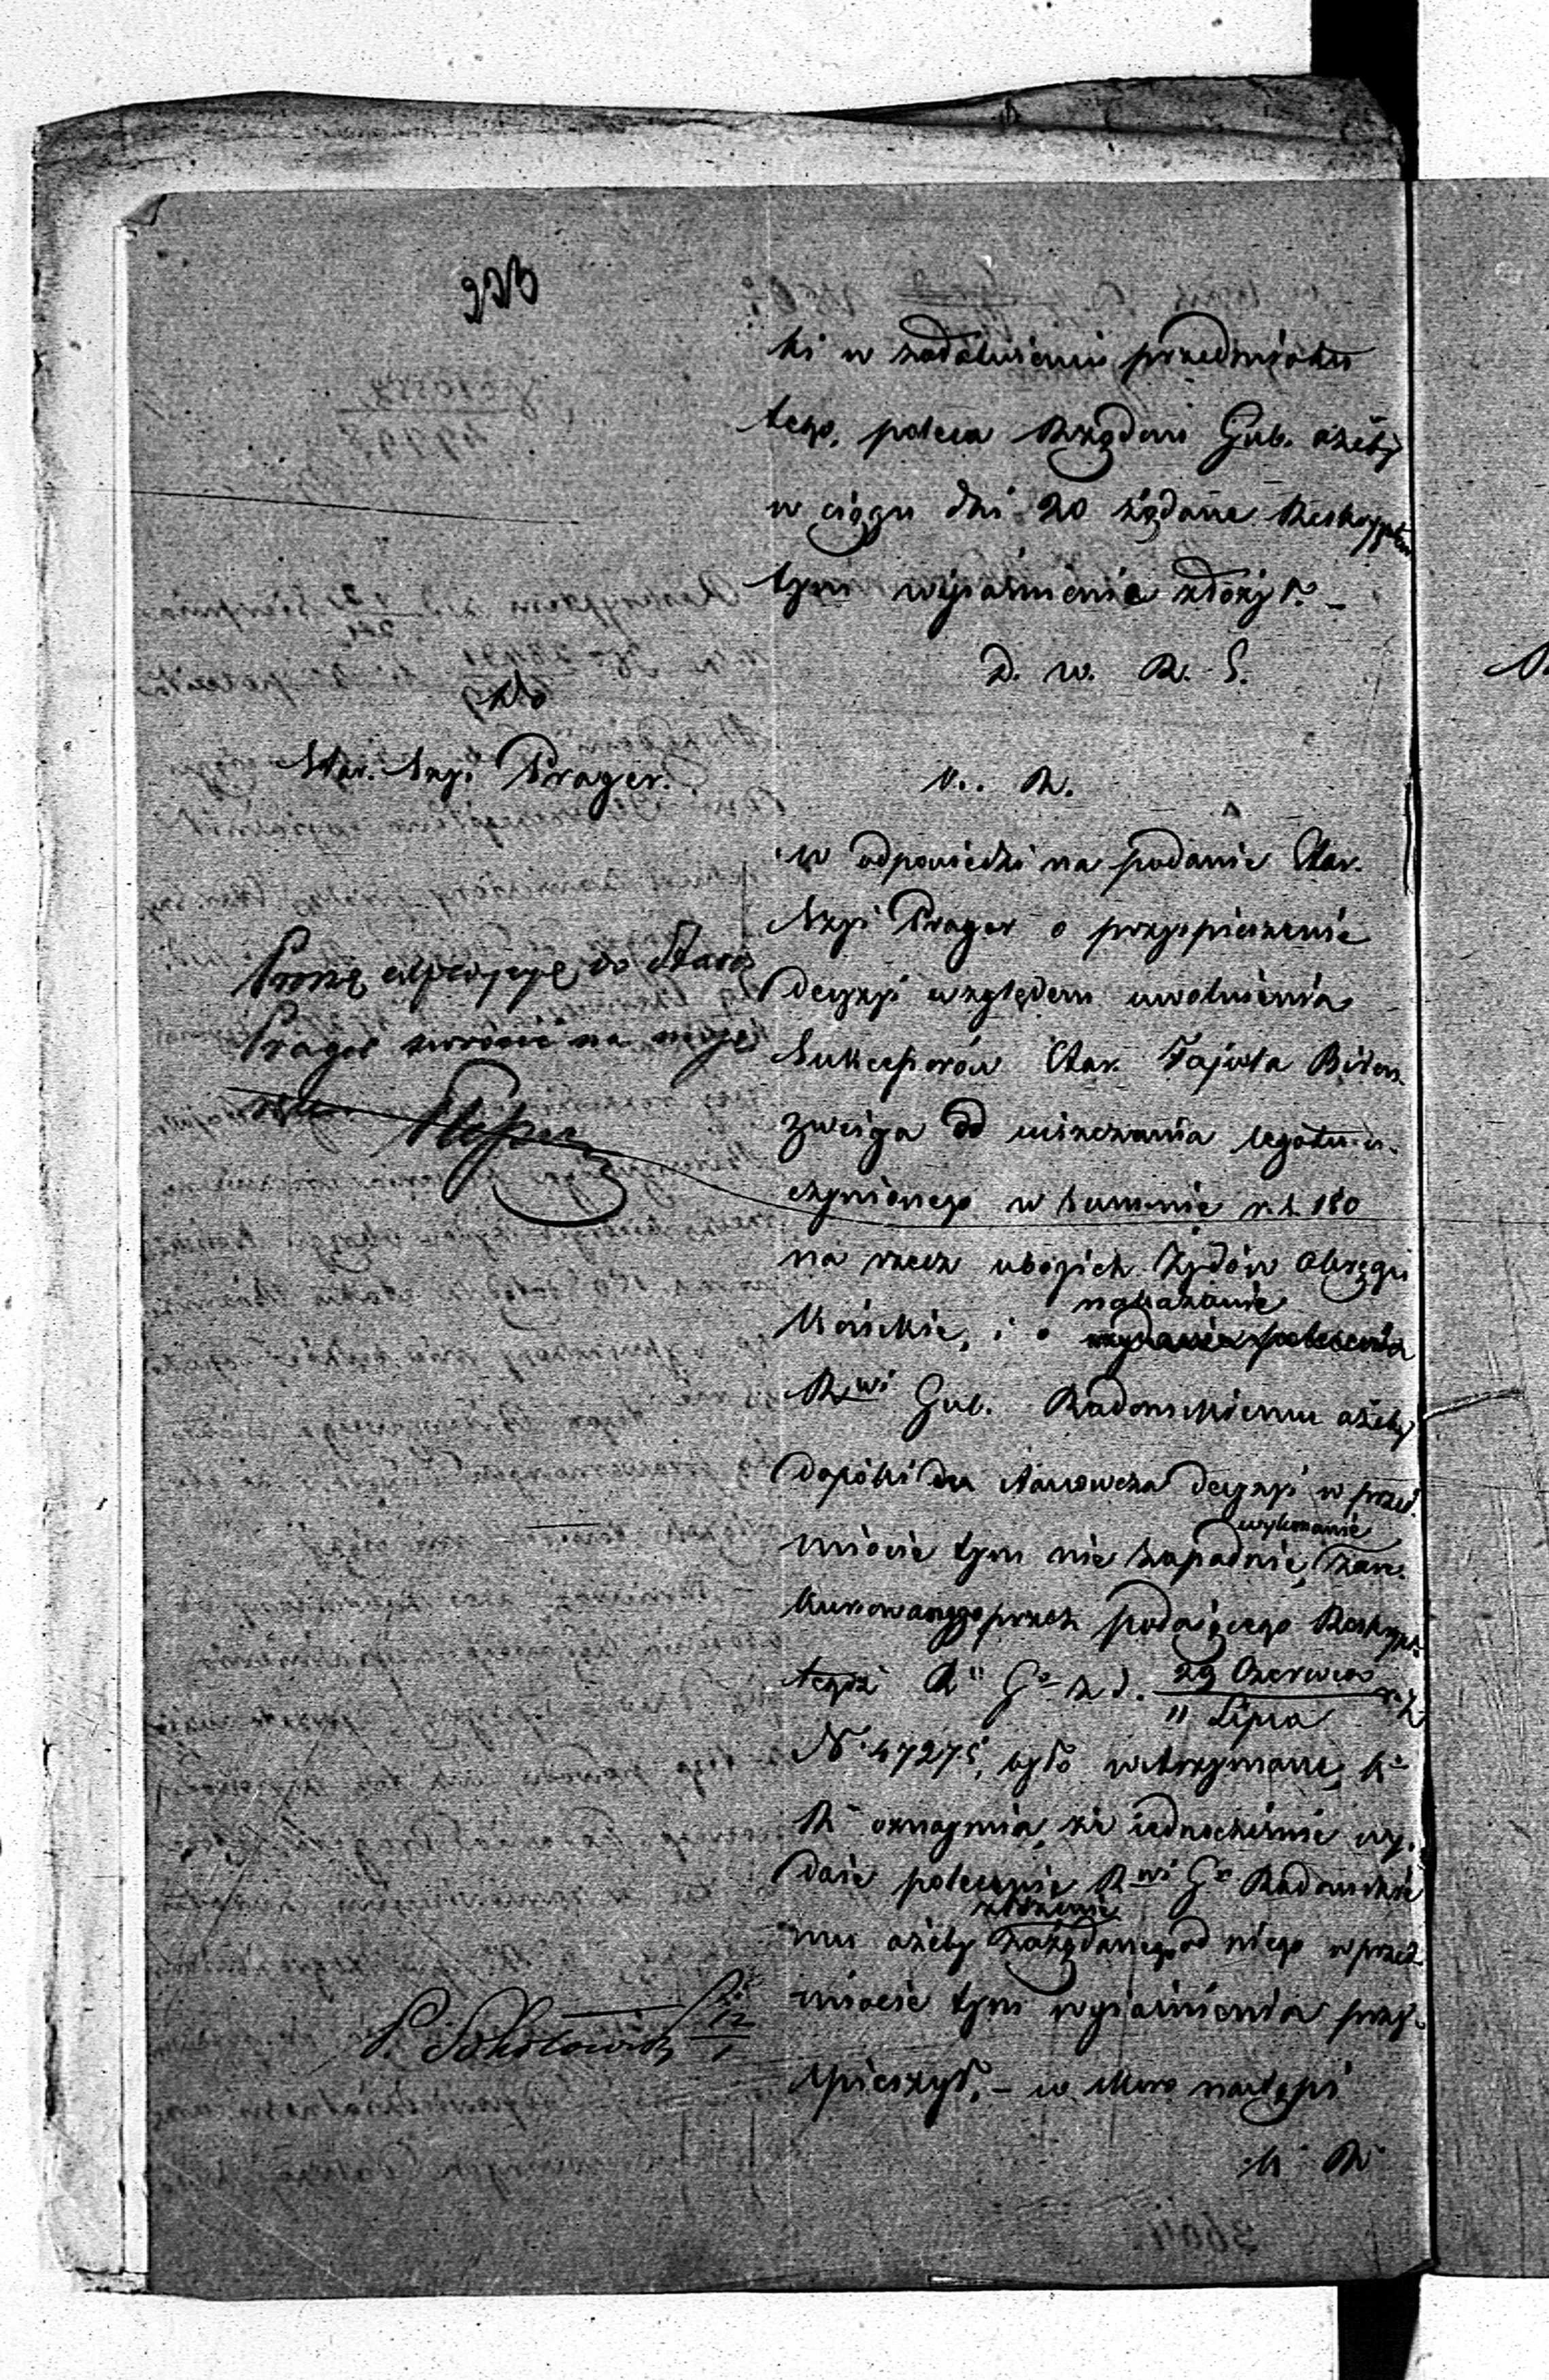 223
ki w zadosieniu przedmiotu
tego, poleca Rządowi Gub. ażeby
w ciągu dni 20 żądane Reskryptem
tym wyiaśnienie złożył. –
D. w. R. S.
Do
Star. Szyi Prager.
K. R.
W odpowiedzi na podanie Star.
Szyi Prager o przyspieszenie
decyzyi względem uwolnienia
Sukcessorów Star. Fajwla
zweiga od uiszczenia legatu u-
czynionego w summie r. s. 180
na rzecz ubogich Żydów Okręgu
i o nakazanie
wydanie polecenia
Rwi Gub. Radomskiemu ażeby
dopóki stanowcza decyzyi w przed-
miocie tym nie zapadnie, wykonanie
przez podaiącego Reskryp-
tegoż Ru Go z d. 29 Czerwca
" Lipca r. z.
N. 47275, było wstrzymane, Ka
Ra oznaymia, że iednocześnie wy-
daie polecenie Rwi Go Radomskie
mu ażeby złożenie zażądanego od niego w przed
miocie tym wyiaśnienia przy-
spieszył, – w skuto nastąpi
K R
Proszę expedycyę do Staroz
Prager zwrócić na moje
P. Sokołowski